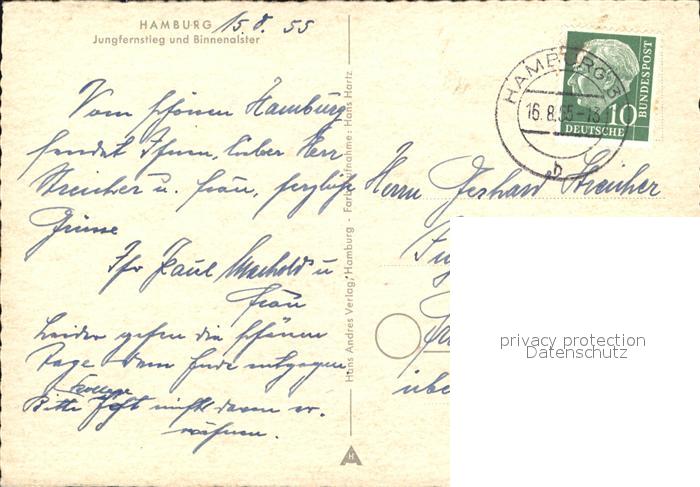 HAMBURG
Jungfernstieg und Binnenalster
15.8.55
Vom schönen Hamburg
sendet Ihnen, lieber Herr
Streicher u. Frau, herzliche
Grüsse
Ihr Paul Machold u
Frau
Leider gehen die schönen
Tage dem Ende entgegen.
Bitte nichts davon er-
wähnen.
Hans Andres Verlag, Hamburg - Farbaufnahme: Hans Hartz
HA
HAMBURG
16.8.55-13
h
10
DEUTSCHE
BUNDESPOST
Herrn Gerhard Streicher
übe
privacy protection
Datenschutz